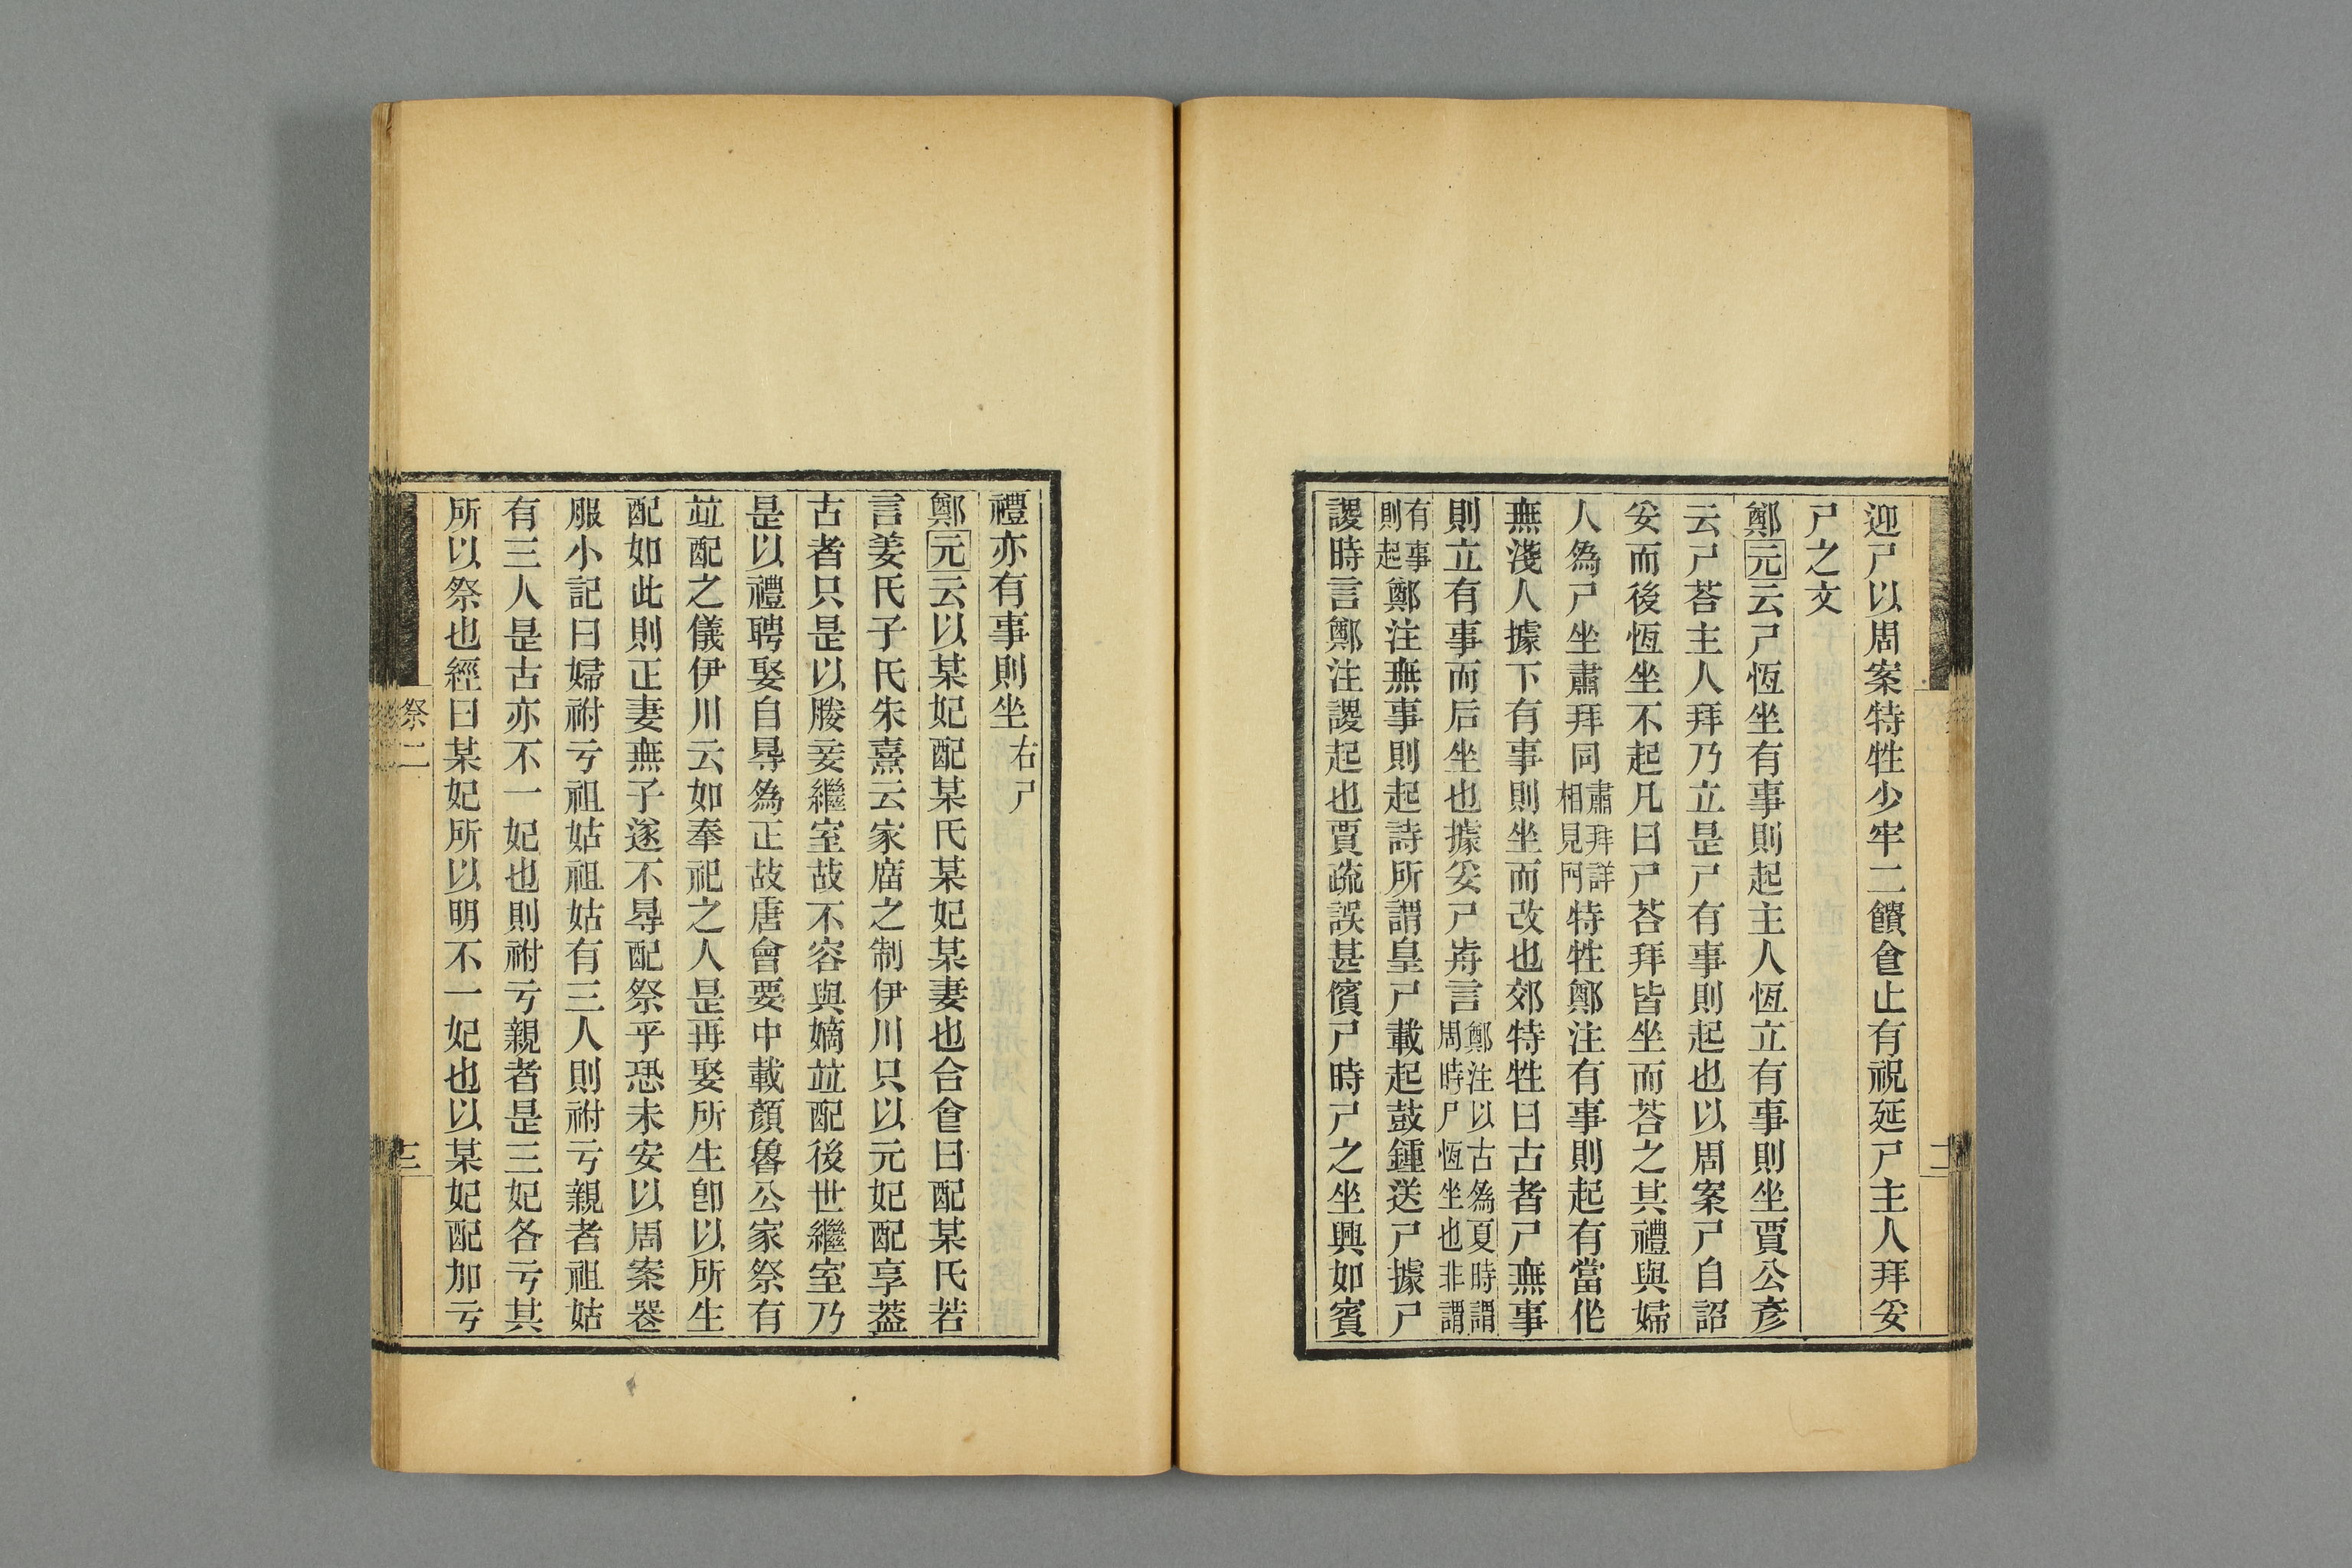 迎尸以周案特牲少牢二饋食止有祝延尸主人拜妥
尸之文
鄭元云尸恆坐有事則起主人恆立有事則坐賈公彥
云尸荅主人拜乃立是尸有事則起也以周案尸自詔
妥而後恆坐不起凡曰尸荅拜皆坐而荅之其禮與婦
人為尸坐肅拜同肅拜詳相見門特牲鄭注有事則起有當作
無淺人據下有事則坐而改也郊特牲曰古者尸無事
則立有事而后坐也據妥尸歬言鄭注以古為夏時謂周時尸恆坐也非謂
有事則起鄭注無事則起詩所謂皇尸載起鼓鍾送尸據尸
謖時言鄭注謖起也賈疏誤甚儐尸時尸之坐興如賓
禮亦有事則坐右尸
鄭元云以某妃配某氏某妃某妻也合食曰配某氏若
言姜氏子氏朱熹云家廟之制伊川只以元妃配享蓋
古者只是以媵妾繼室故不容與嫡竝配後世繼室乃
是以禮聘娶自㝵為正故唐會要中載顏魯公家祭有
竝配之儀伊川云如奉祀之人是再娶所生卽以所生
配如此則正妻無子遂不㝵配祭乎恐未安以周案喪
服小記曰婦祔亏祖姑祖姑有三人則祔亏親者祖姑
有三人是古亦不一妃也則祔亏親者是三妃各亏其
所以祭也經曰某妃所以明不一妃也以某妃配加亏
祭二
三